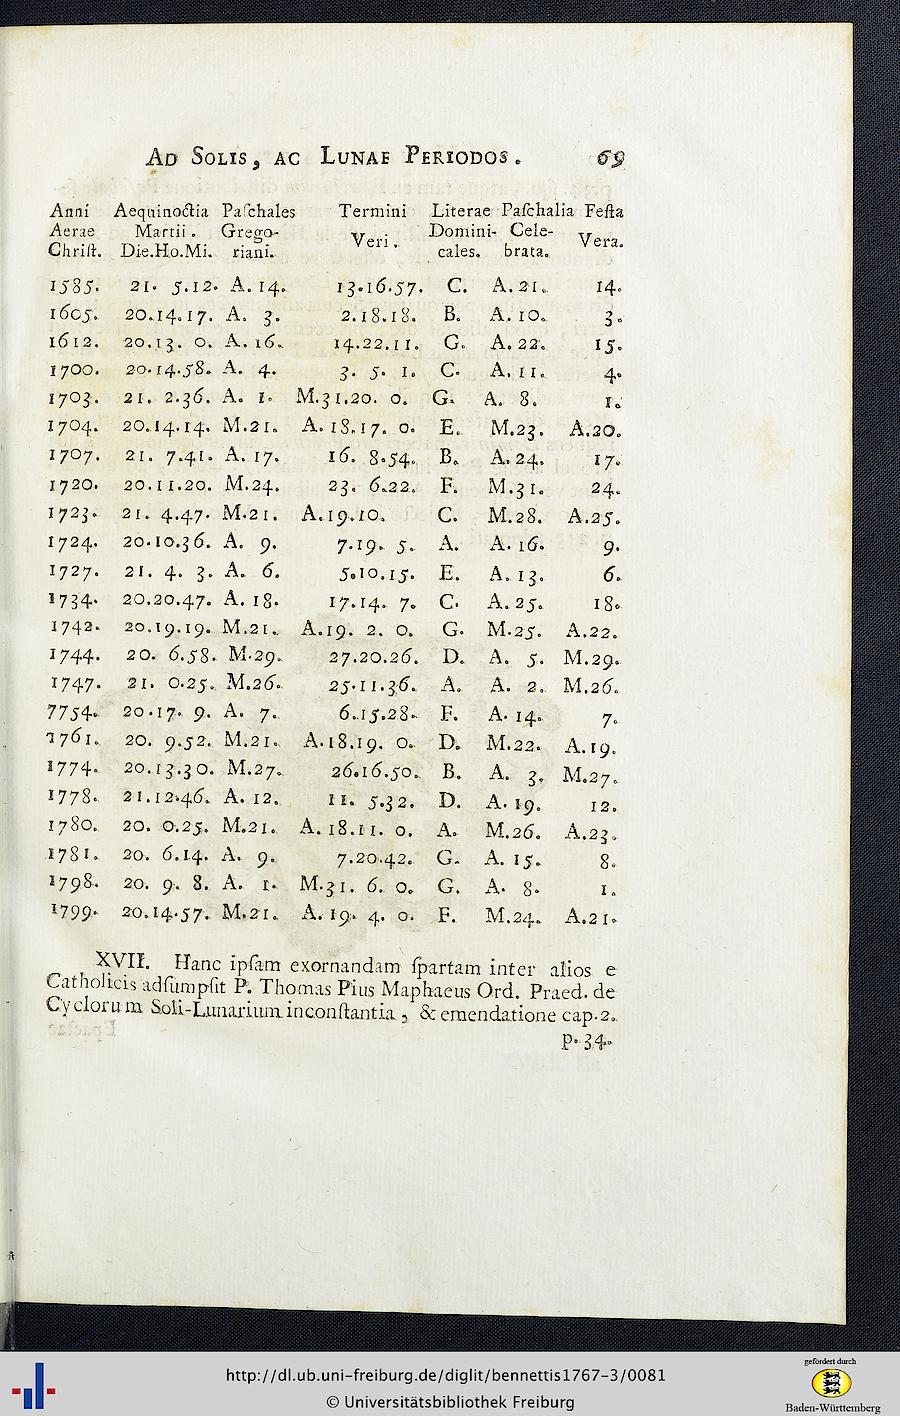 AD SOLIS, AC LUNAE PERIODOS. 69
Anni Aequinoctia Paſchales Termini Literae Paſchalia Feſta
Aerae Martii. Grego- Veri. Domini- Cele- Vera.
Chriſt. Die.Ho.Mi. riani. cales. brata.
1585. 21. 5.12. A. 14. 13.16.57. C. A. 21. 14.
1605. 20.14.17. A. 3. 2.18.18. B. A. 10. 3.
1612. 20.13. 0. A. 16. 14.22.11. G. A. 22. 15.
1700. 20.14.58. A. 4. 3. 5. 1. C. A. 11. 4.
1703. 21. 2.36. A. 1. M.31.20. 0. G. A. 8. 1.
1704. 20.14.14. M.21. A. 18.17. 0. E. M.23. A.20.
1707. 21. 7.41. A. 17. 16. 8.54. B. A. 24. 17.
1720. 20.11.20. M.24. 23. 6.22. F. M.31. 24.
1723. 21. 4.47. M.21. A.19.10. C. M.28. A.25.
1724. 20.10.36. A. 9. 7.19. 5. A. A. 16. 9.
1727. 21. 4. 3. A. 6. 5.10.15. E. A. 13. 6.
1734. 20.20.47. A. 18. 17.14. 7. C. A. 25. 18.
1742. 20.19.19. M.21. A.19. 2. 0. G. M.25. A.22.
1744. 20. 6.58. M.29. 27.20.26. D. A. 5. M.29.
1747. 21. 0.25. M.26. 25.11.36. A. A. 2. M.26.
7754. 20.17. 9. A. 7. 6.15.28. F. A. 14. 7.
1761. 20. 9.52. M.21. A.18.19. 0. D. M.22. A.19.
1774. 20.13.30. M.27. 26.16.50. B. A. 3. M.27.
1778. 21.12.46. A. 12. 11. 5.32. D. A. 19. 12.
1780. 20. 0.25. M.21. A. 18.11. 0. A. M.26. A.23.
1781. 20. 6.14. A. 9. 7.20.42. G. A. 15. 8.
1798. 20. 9. 8. A. 1. M.31. 6. 0. G. A. 8. 1.
1799. 20.14.57. M.21. A. 19. 4. 0. F. M.24. A.21.
XVII. Hanc ipſam exornandam ſpartam inter alios e
Catholicis adſumpſit P. Thomas Pius Maphaeus Ord. Praed. de
Cyclorum Soli-Lunarium inconſtantia, & emendatione cap. 2.
p. 34.
http://dl.ub.uni-freiburg.de/diglit/bennettis1767-3/0081
© Universitätsbibliothek Freiburg
gefördert durch
Baden-Württemberg